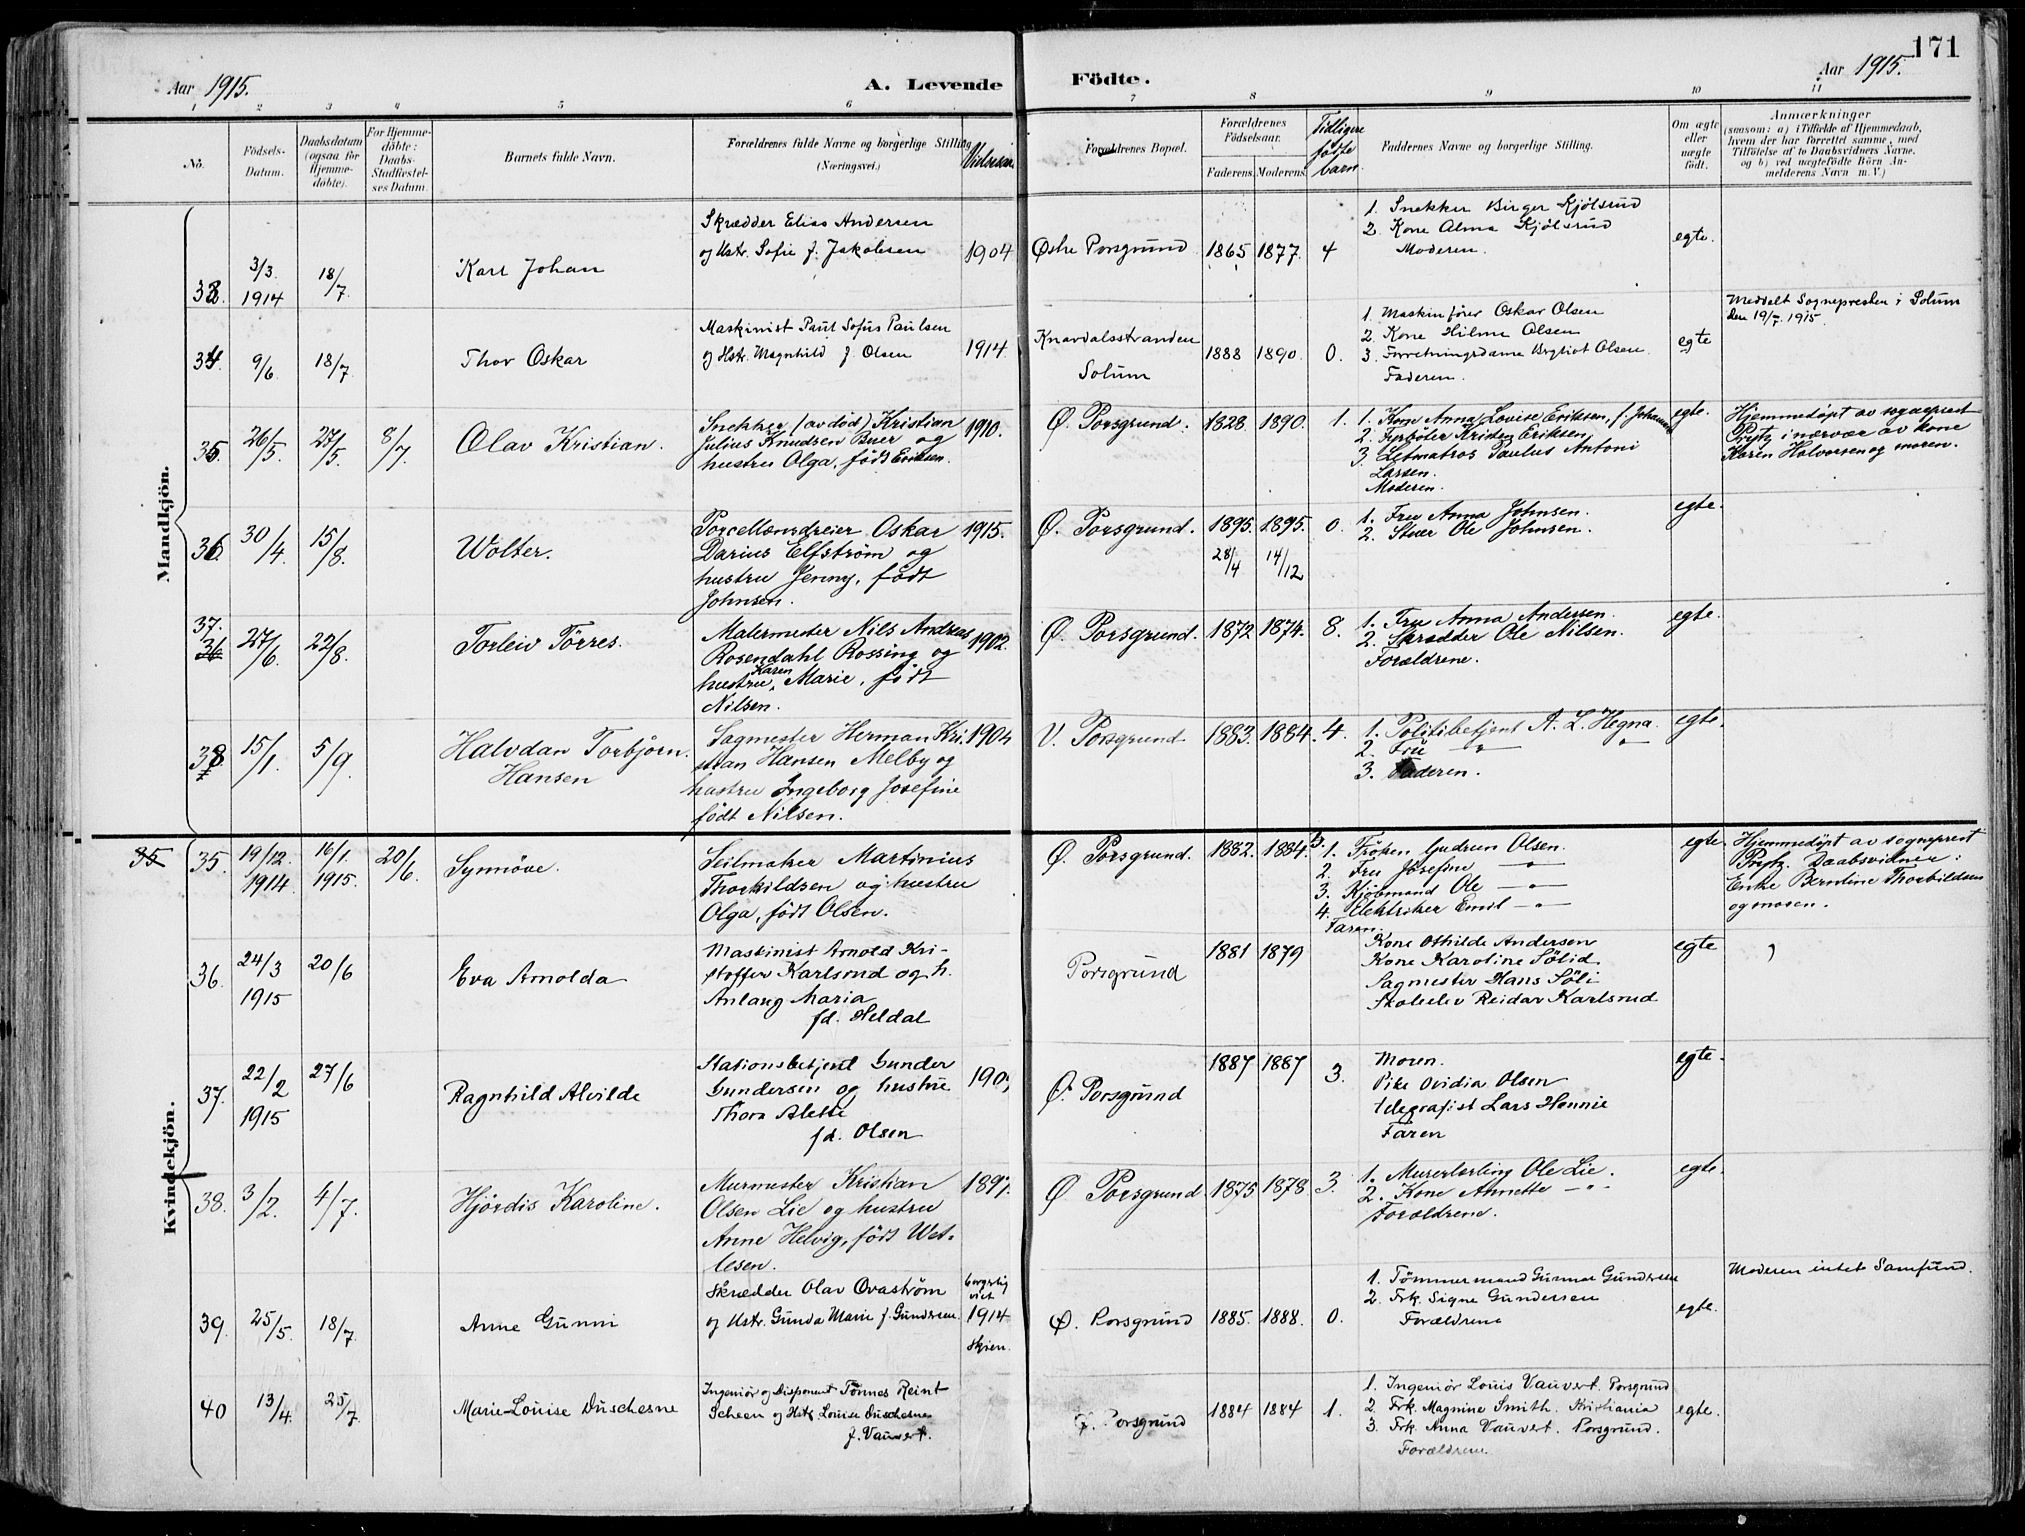 171
Aar 1915.
A. Levende
Födte.
Aar 1915.
1 2 3 4 5 6 7 8 9 10 11
No.
Födsels-
Datum.
Daabsdatum
(ogsaa for
Hjemme-
döbte).
For Hjemme-
döbte:
Daabs-
Stadfæstel-
ses Datum.
Barnets fulde Navn.
Forældrenes fulde Navne og borgerlige Stilling
(Næringsvei.)
Forældrenes Bopæl.
Forældrenes
Födselsaar.
Faderens. Moderens.
Tidligere
fødte
barn.
Faddernes Navne og borgerlige Stilling.
Om ægte
eller
uægte
födt.
Anmærkninger
(saasom: a) i Tilfælde af Hjemmedaab,
hvem der har forrettet samme, med
Tilföielse af to Daabsvidners Navne.
og b) ved uægtefödte Börn An-
melderens Navn m. V.)
Mandkjön.
3/3
1914
18/7
Karl Johan
Skrædder Elias Andersen
og Hstr. Sofie f. Jakobsen
1904
Østre Porsgrund
1865 1877. 4
1. Snekker Birger Kjölsrud
2. Kone Alma Kjölsrud
Moderen.
egte.
34.
9/6
18/7
Thor Oskar
Maskinist Paul Sofus Paulsen
og Hstr. Magnhild f. Olsen
1914.
Knardalsstranden
Solum
1888 1890. 0.
1. Maskinfører Oskar Olsen
2. Kone Hilma Olsen
3. Forretningsdame Bergliot Olsen
Faderen.
egte
Meddelt Sognepresten i Solum
den 19/7 1915.
35.
26/5.
27/5.
8/7
Olav Kristian.
Snekker (avdöd) Kristian
Julius Knudsen Buer og
hustru Olga, födt Eriksen.
1910.
Ø. Porsgrund.
1828 1890. 1.
1. Kone Anna Lovise Eriksen, f. Johannes
2. Fyrböter Kristen Eriksen
3. Letmatros Paulus Antoni
Larsen.
Moderen.
egte.
Hjemmedöpt av sogneprest
Prytz i nærvær av kone
Karen Halvorsen og moren.
36.
30/4.
15/8.
Wolter.
Porcellænsdreier Oskar
Darius Elfström og
hustru Jenny, födt
Johnsen.
1915.
Ø. Porsgrund.
1895. 1895. 0.
28/4 14/12
1. Fru Anna Johnsen.
2. Stuer Ole Johnsen.
egte.
37.
36
27/6.
22/8.
Torleiv Törres.
Malermester Nils Andreas
Rosendahl Rossing og
hustru Karen Marie, födt
Nilsen.
1902.
Ø. Porsgrund.
1872 1874. 8.
1. Fru Anna Andersen.
2. Skrædder Ole Nilsen.
Forældrene.
egte.
38
15/1.
5/9.
Halvdan Torbjörn
Hansen
Sagmester Herman Kri-
stian Hansen Melby og
hustru Ingeborg Josefine
födt Nilsen.
1904
V. Porsgrund.
1883. 1884. 4.
1. Politibetjent A. L. Hegna.
2. Fru — " — "
3. Faderen.
egte.
Kvindekjön.
35
35.
19/12.
1914.
16/1
1915.
20/6.
Synnöve.
Seilmaker Martinius
Thorkildsen og hustru
Olga, födt Olsen.
Ø. Porsgrund.
1882. 1884.
1. Fröken Gudrun Olsen.
2. Fru Josefine — " —
3. Kjöbmand Ole — " —
4. Elektriker Emil — " —
Faren.
egte.
Hjemmedöpt av sogneprest
Prytz. Daabsvidner:
Enke Berntine Thorkildsen
og moren.
36.
24/3
1915
20/6
Eva Arnolda
Maskinist Arnold Kri-
stoffer Karlsrud og h.
Anlaug Maria
fd. Heldal
Porsgrund
1881 1879
Kone Othilde Andersen
Kone Karoline Sölid.
Sagmester Hans Söli
Skoleelev Reidar Karlsrud
egte
37.
22/2
1915
27/6
Ragnhild Alvilde
Stationsbetjent Gunder
Gundersen og hustru
Thora Alette
fd. Olsen
Ø. Porsgrund
1887 1887 3.
Moren.
Pike Ovidia Olsen
telegrafist Lars Hennie
Faren
egte.
38.
3/2.
4/7.
Hjördis Karoline.
Murmester Kristian
Olsen Lie og hustru
Anne Helvig, födt Wet-
lesen.
1897.
Ø Porsgrund
1875 1878 3.
1. Murerlærling Ole Lie.
2. Kone Annette — " —
Forældrene.
egte.
39.
25/5.
18/7.
Anne Gunni
Skrædder Olav Ovaström
og Hstr. Gunda Marie f. Gundersen
borgerlig
viet
1914
Skien.
Ø. Porsgrund
1885. 1888. 0.
1. Tömmermand Gunnar Gundersen
2. Frk. Signe Gundersen
Forældrene
egte.
Moderen intet Samfund.
40
13/4.
25/7.
Marie-Louise Duschesne
Ingeniør og Disponent Tönnes Reint
Scheen og Hstr. Louise Duschesne
f. Vauvert.
Ø. Porsgrund
1884 1884 1.
1. Ingeniør Louis Vauvert. Porsgrund
2. Frk. Magnine Smith. Kristiania
3. Frk. Anna Vauvert. Porsgrund.
Forældrene.
egte.